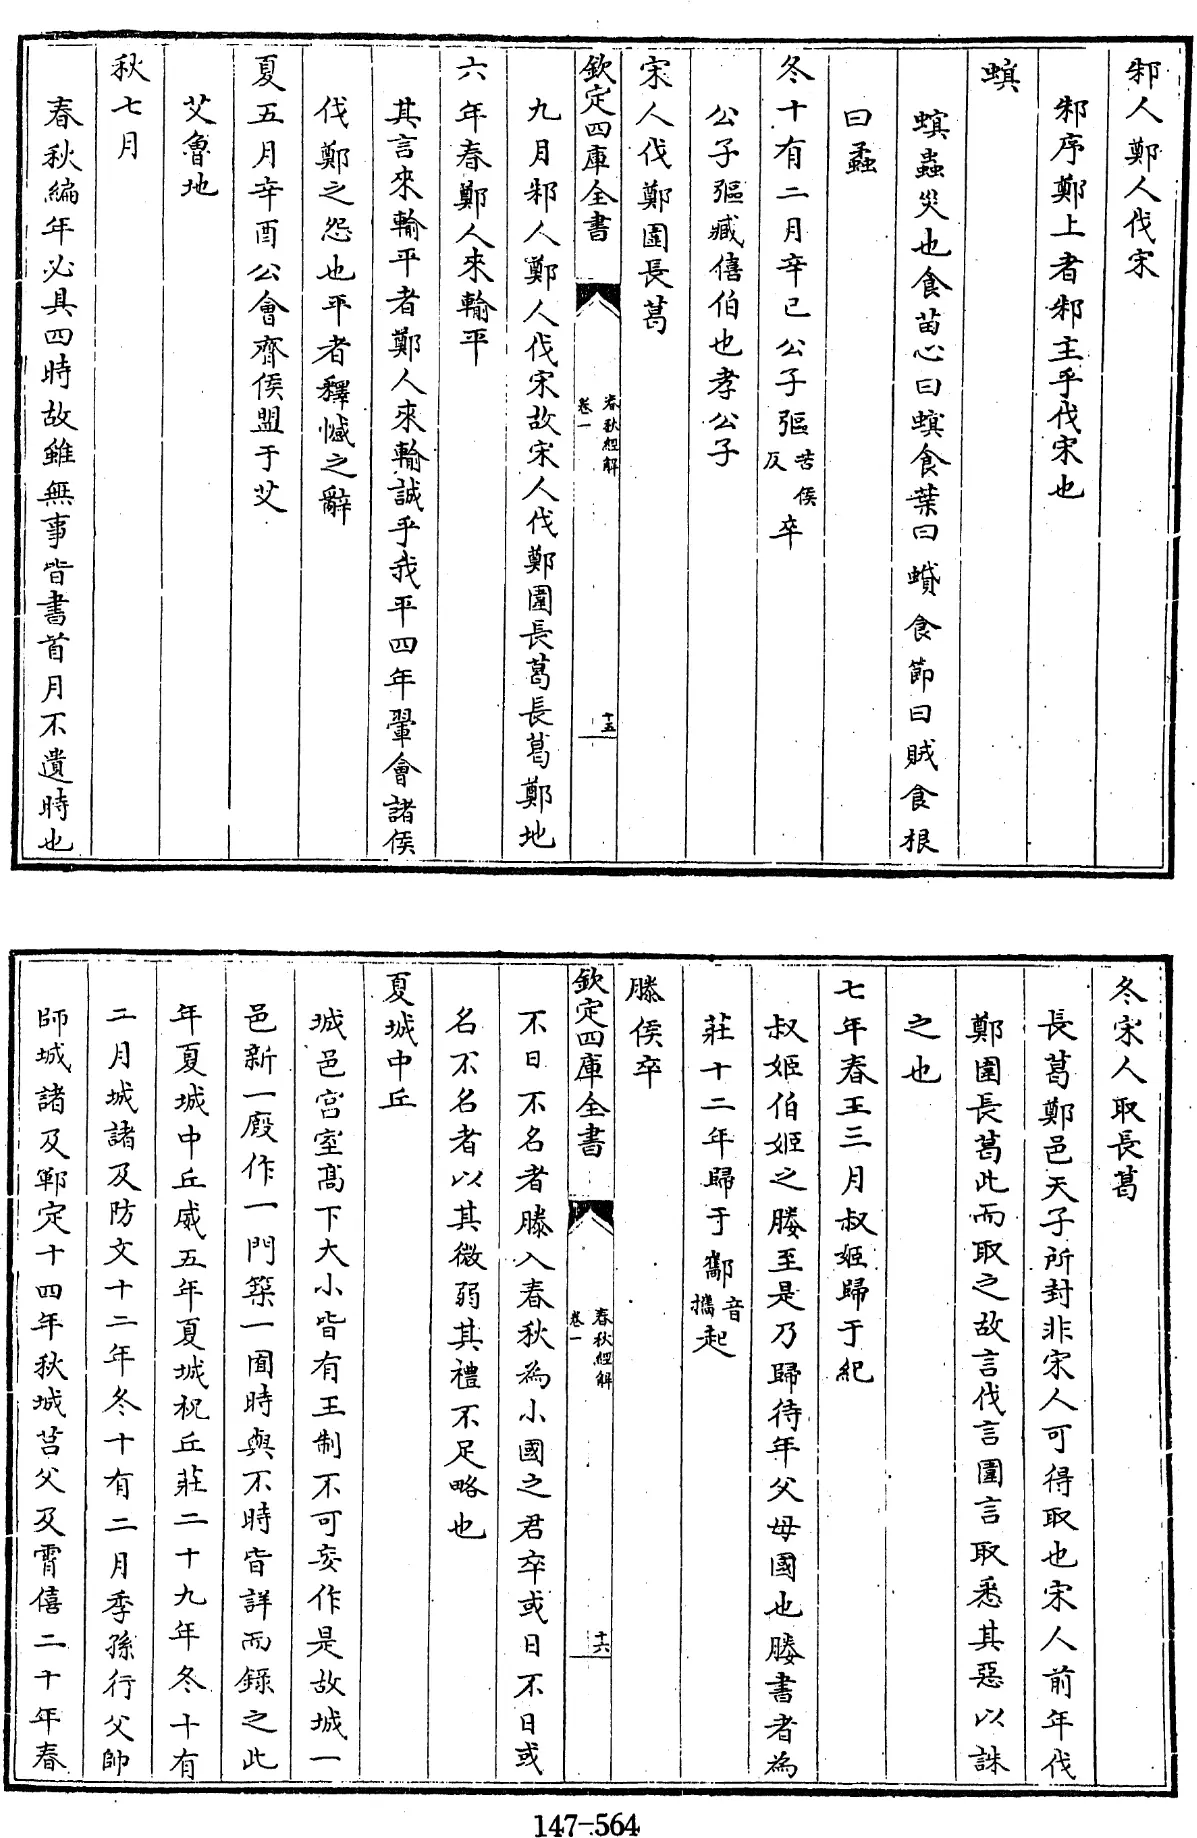 邾人鄭人伐宋
邾序鄭上者邾主乎伐宋也
螟
螟蟲災也食苗心曰螟食葉曰蟘食節曰賊食根
曰蟊
冬十有二月辛巳公子彄苦侯反卒
公子彄臧僖伯也孝公子
宋人伐鄭圍長葛
欽定四庫全書
春秋經解
卷一
十五
九月邾人鄭人伐宋故宋人伐鄭圍長葛長葛鄭地
六年春鄭人來輸平
其言來輸平者鄭人來輸誠乎我平四年翬會諸侯
伐鄭之怨也平者釋憾之辭
夏五月辛酉公會齊侯盟于艾
艾魯地
秋七月
春秋編年必具四時故雖無事皆書首月不遺時也
冬宋人取長葛
長葛鄭邑天子所封非宋人可得取也宋人前年伐
鄭圍長葛此而取之故言伐言圍言取悉其惡以誅
之也
七年春王三月叔姬歸于紀
叔姬伯姬之媵至是乃歸待年父母國也媵書者為
莊十二年歸于酅音攜起
滕侯卒
欽定四庫全書
春秋經解
卷一
十六
不日不名者滕入春秋為小國之君卒或日不日或
名不名者以其微弱其禮不足略也
夏城中丘
城邑宮室高下大小皆有王制不可妄作是故城一
邑新一廄作一門築一囿時與不時皆詳而錄之此
年夏城中丘威五年夏城祝丘莊二十九年冬十有
二月城諸及防文十二年冬十有二月季孫行父帥
師城諸及鄆定十四年秋城莒父及霄僖二十年春
147-564